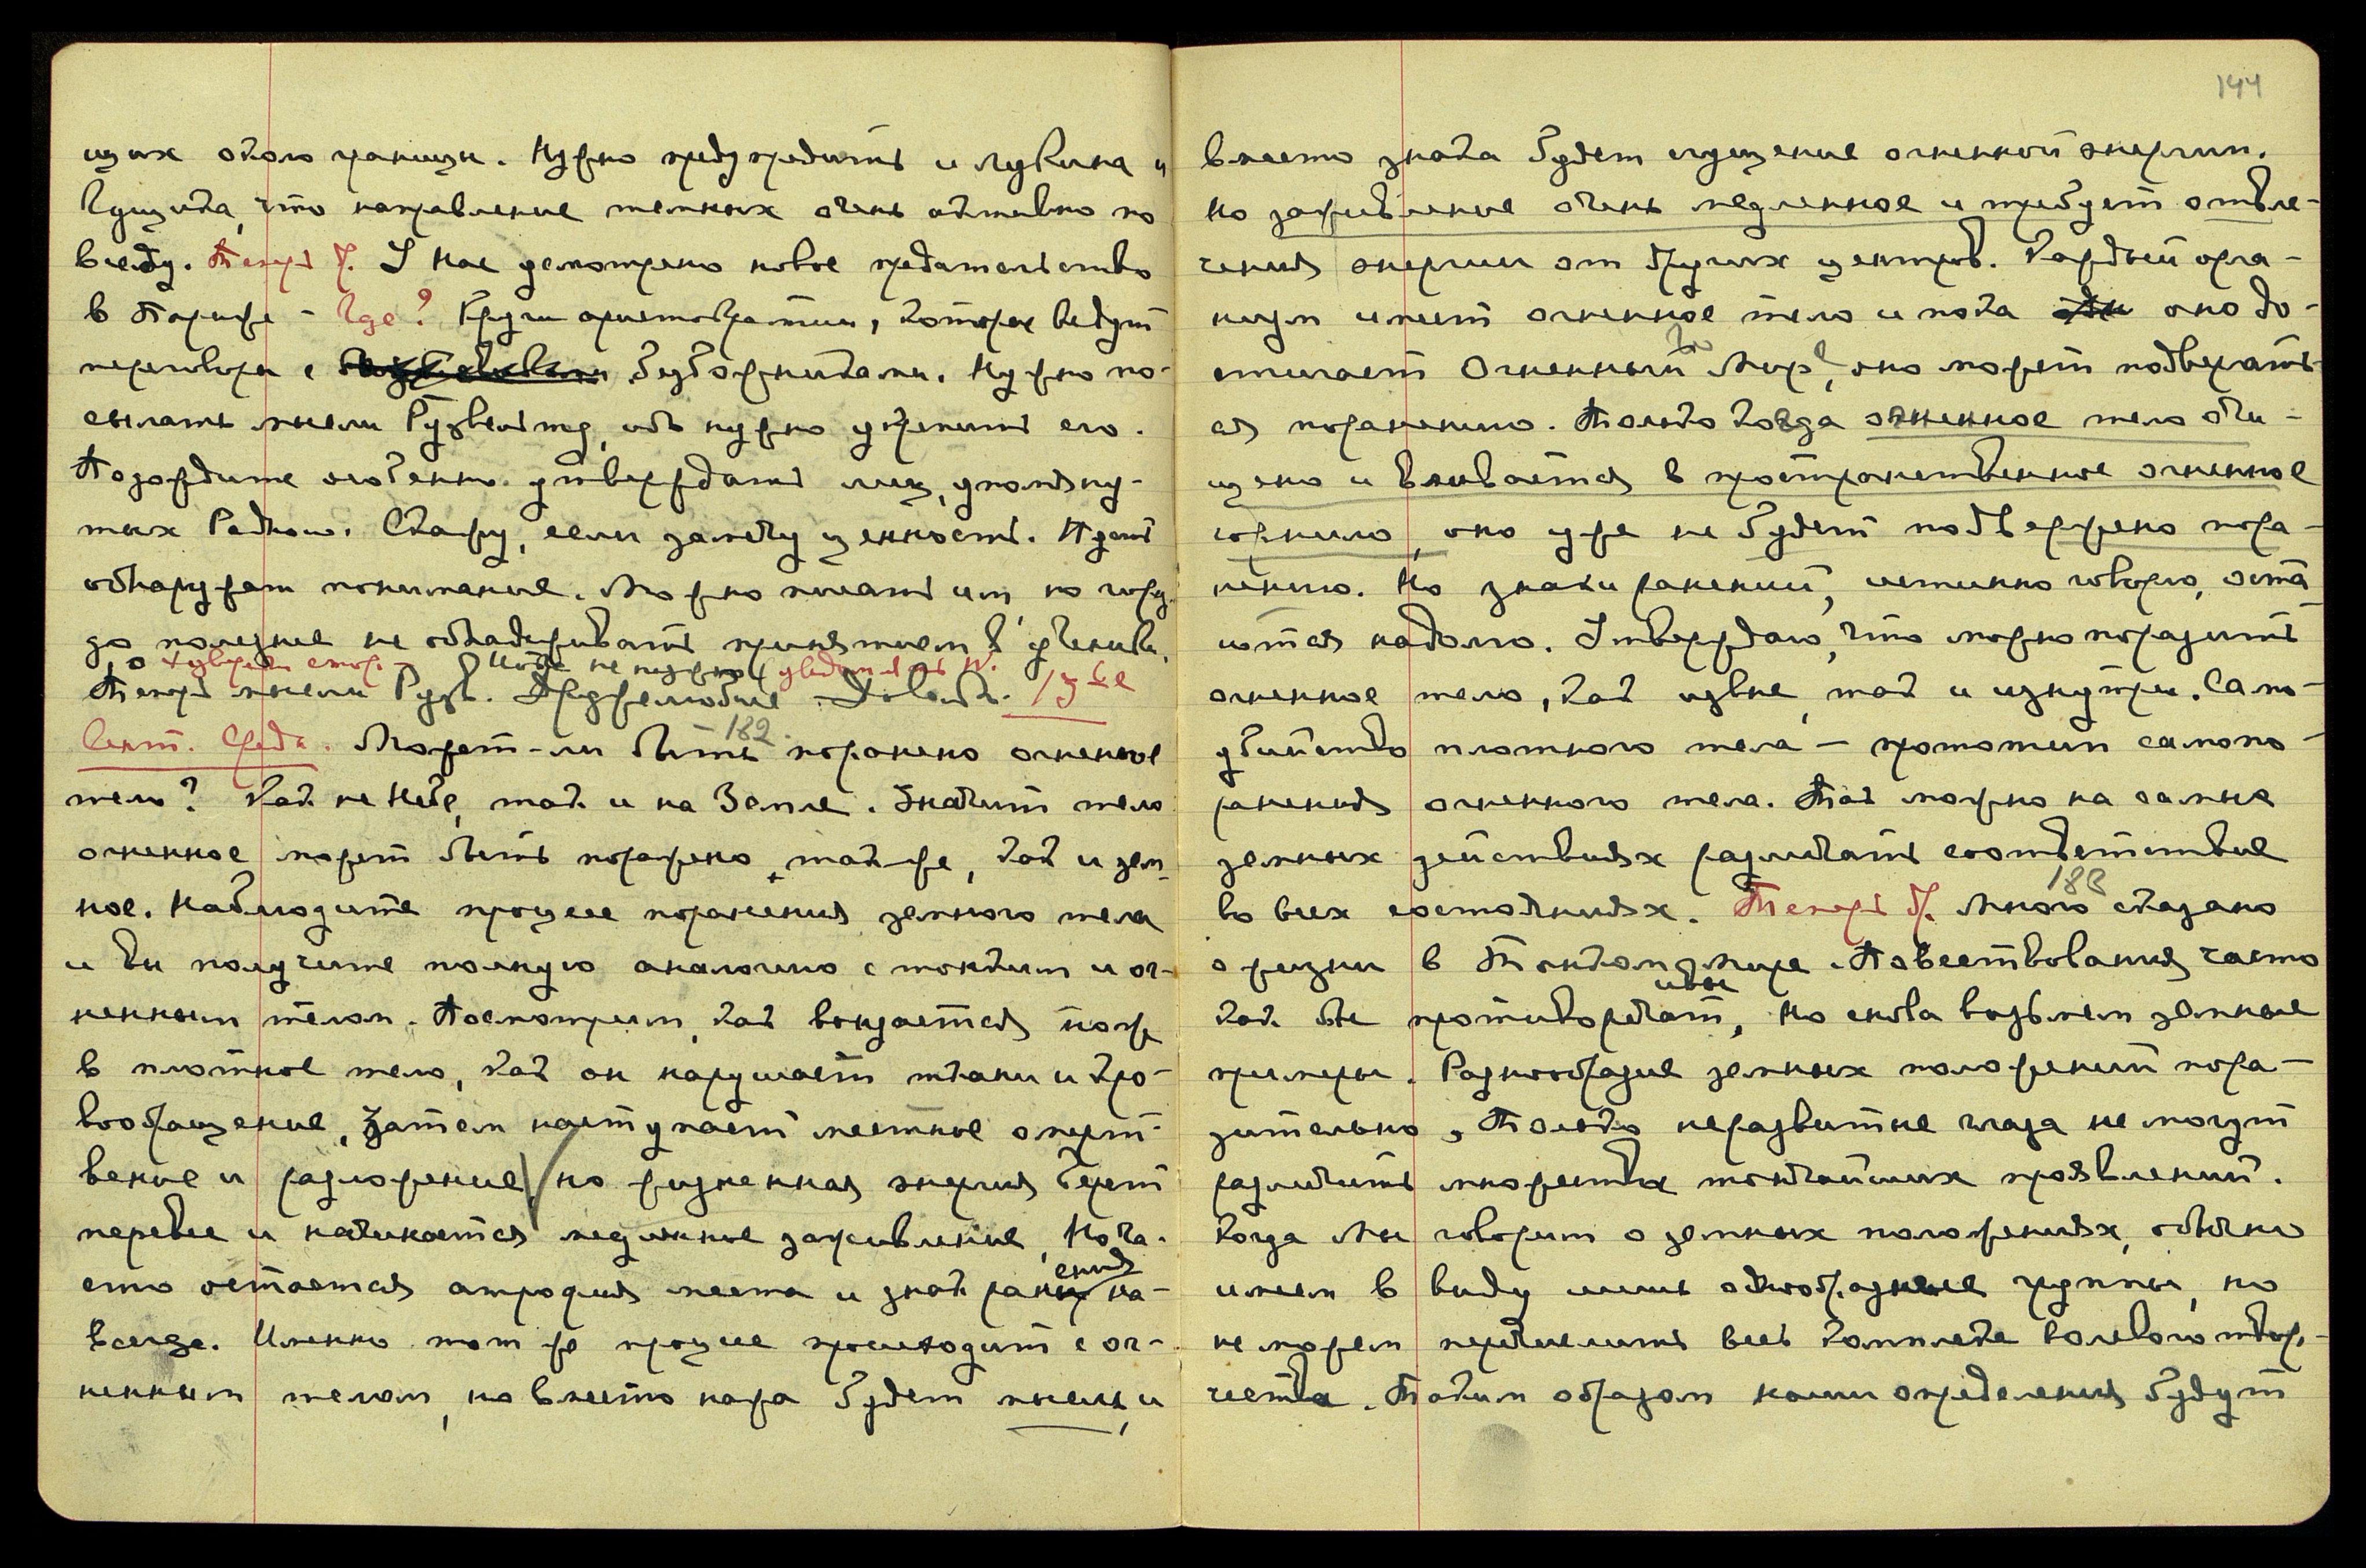 щих около границы. Нужно предупредить и Лукина и
что направление темных очень активно по
всюду. Теперь др. У Нас усмотрено новое предательство
в Париже – Где? Круги аристократии, которые ведут
переговоры с безбожниками. Нужно по-
сылать мысли Рузвельту, ибо нужно укрепить его.
Подождите особенно утверждать лиц, упомяну-
тых Радном. Скажу, если замечу ценность. Пусть
обнаружат понимание. Можно писать им, но гораз-
до полезнее не обнадеживать принятием в ученики.
Теперь мысли Рузв. Дружелюбие. Довольно. 13ое
Сент. Среда. Может-ли быть поранено огненное
182.
тело? Как на Небе, так и на Земле. Значит тело
огненное может быть поражено также, как и зем-
ное. Наблюдите процесс поранения земного тела
и вы получите полную аналогию с тонким и ог-
ненным телом. Посмотрим, как вонзается нож
в плотное тело, как он нарушает ткани и кро-
вообращение, затем наступает местное омерт-
вение и разложение, но жизненная энергия берет
перевес и начинается медленное заживление, Но ча-
сто остается атрофия места и знак ранения на-
всегда. Именно тот же процесс происходит с ог-
ненным телом, но вместо ножа будет мысль, и
144
вместо знака будет истощение огненной энергии.
Но заживление очень медленное и требует отвле-
чения энергии от других центров. Каждый орга-
низм имеет огненное тело и пока оно до-
стигает Огненный Мир, оно может подвергать-
ся поранению. Только когда огненное тело очи-
щено и вливается в пространственное огненное
горнило, оно уже не будет подвержено пора-
нению. Но знаки ранений, истинно говорю, оста
ются надолго. Утверждаю, что можно поразить
огненное тело, как извне, так и изнутри. Само-
убийство плотного тела – прототип самопо-
ранения огненного тела. Так можно на самых
земных действиях различать соответствие
183
во всех состояниях. Теперь др. Много сказано
о жизни в Тонком Мире. Повествования часто
как бы противоречат, но снова возьмем земные
примеры. Разнообразие земных положений пора-
зительно, Только неразвитые глаза не могут
различить множества тончайших проявлений.
Когда Мы говорим о земных положениях, обычно
имеем в виду лишь однообразные группы, но
не можем перечислить весь комплекс волевого твор-
чества. Таким образом наши определения будут